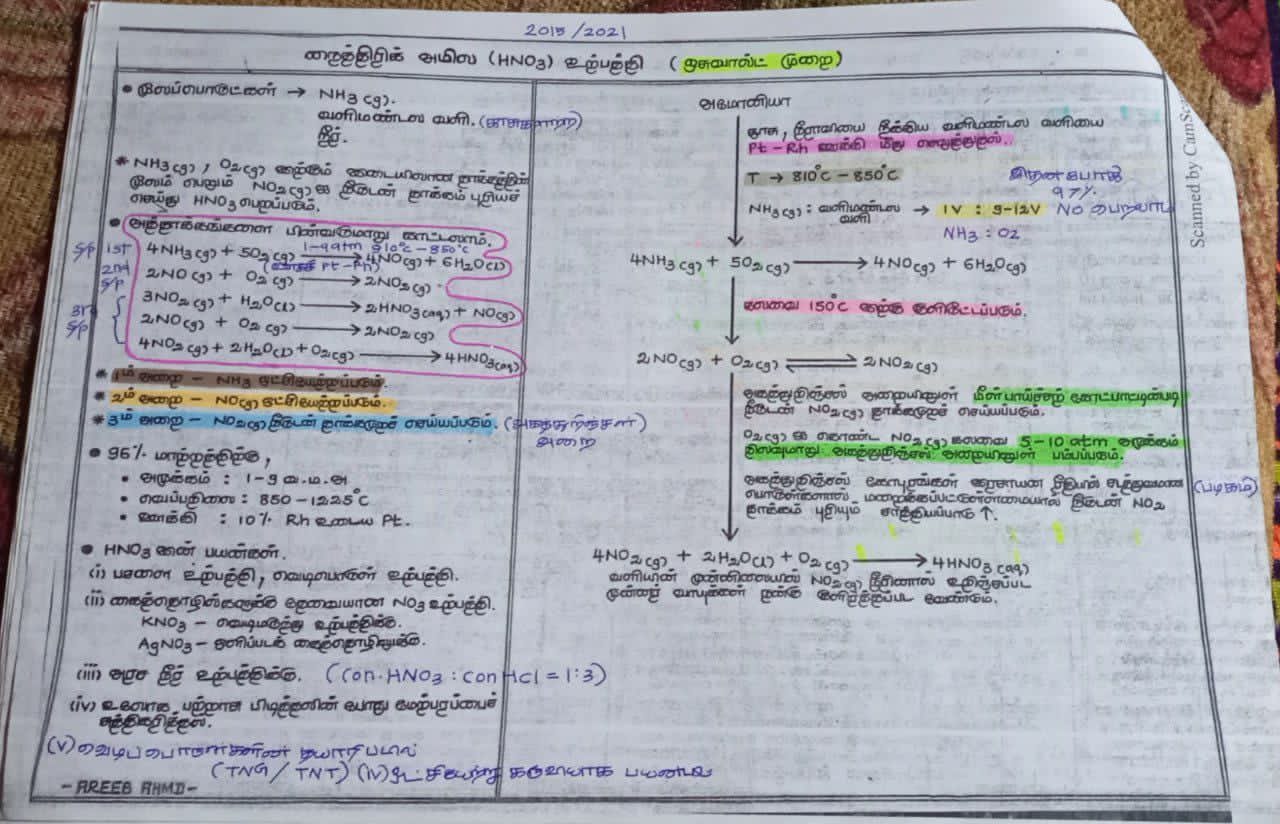 2015/2021
நைத்திரிக் அமில (HNO3) உற்பத்தி ( ஒசுவால்ட் முறை)
• மூலப்பொருட்கள் → NH3(g).
வளிமண்டல வளி. (தூசுகளற்ற)
நீர்.
* NH3(g), O2(g) இற்கும் இடையிலான தாக்கத்தின்
மூலம் பெறும் NO2(g) ஐ நீருடன் தாக்கம் புரியச்
செய்து HNO3 பெறப்படும்.
• அத்தாக்கங்களை பின்வருமாறு காட்டலாம்.
S/p 1st 4NH3(g) + 5O2(g) 1-9atm 810°C-850°C → 4NO(g) + 6H2O(l)
(ஊக்கி Pt-Rh)
2nd S/p 2NO(g) + O2(g) → 2NO2(g).
3rd S/p 3NO2(g) + H2O(l) → 2HNO3(aq) + NO(g)
2NO(g) + O2(g) → 2NO2(g)
4NO2(g) + 2H2O(l) + O2(g) → 4HNO3(aq)
* 1ம் அறை - NH3 ஒட்சியேற்றப்படும்.
* 2ம் அறை - NO(g) ஒட்சியேற்றப்படும்.
* 3ம் அறை - NO2(g) நீருடன் தாக்கமுறச் செய்யப்படும். (அகத்துறிஞ்சள்
அறை)
• 96% மாற்றத்திற்கு,
• அமுக்கம் : 1-9 வ.ம.அ
• வெப்பநிலை : 850-1225°C
• ஊக்கி : 10% Rh உடைய Pt.
• HNO3 இன் பயன்கள்.
(i) பசளை உற்பத்தி, வெடிபொருள் உற்பத்தி.
(ii) கைத்தொழில்களுக்கு தேவையான NO3 உற்பத்தி.
KNO3 - வெடிமருந்து உற்பத்திக்கு.
AgNO3 - ஒளிப்படக் கைத்தொழிலுக்கு.
(iii) அரச நீர் உற்பத்திக்கு. (Con.HNO3 : con HCl = 1:3)
(iv) உலோக பற்றாசு பிடித்தலின் போது மேற்பரப்பைச்
சுத்திகரித்தல்.
(V) வெடிப்பொருள்களின் தயாரிப்பில்
(TNG / TNT) (iv) ஒட்சியேற்று கருவியாக
-AREEB AHMD-
அமோனியா
தூசு, நீராவியை நீக்கிய வளிமண்டல வளியை
Pt-Rh ஊக்கி மீது செலுத்துதல்.
T → 810°C - 850°C
97%
NH3(g) : வளிமண்டல வளி → 1V : 9-12V NO
NH3 : O2
4NH3(g) + 5O2(g) → 4NO(g) + 6H2O(g)
கலவை 150°C இற்கு குளிரூட்டப்படும்.
2NO(g) + O2(g) ⇌ 2NO2(g)
அகத்துறிஞ்சல் அறையினுள் மீள்பாய்ச்சற் கோட்பாட்டின்படி
நீருடன் NO2(g) தாக்கமுறச் செய்யப்படும்.
O2(g) ஐ கொண்ட NO2(g) கலவை 5-10 atm அமுக்கம்
நிலவுமாறு அகத்துறிஞ்சல் அறையினுள் பம்பப்படும்.
அகத்துறிஞ்சல் கோபுரங்கள் இரசாயன ரீதியில் சடத்துவமான (படிகம்)
பொருள்களால் மறைக்கப்பட்டுள்ளமையால் நீருடன் NO2
தாக்கம் புரியும் சாத்தியப்பாடு ↑.
4NO2(g) + 2H2O(l) + O2(g) → 4HNO3(aq)
வளியின் முன்னிலையில் NO2(g) நீரினால் உறிஞ்சப்பட
முன்னர் வாயுக்கள் நன்கு குளிர்த்தப்பட வேண்டும்.
Scanned by CamSc